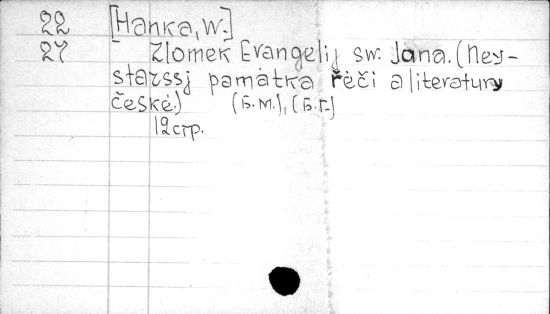 22 [Hanka, W.]
27 Zlomek Evangelij sw. Jana. (Ney-
starssj památka řeči a literatury
české.) (Б.М.), [Б.Г.]
12 стр.